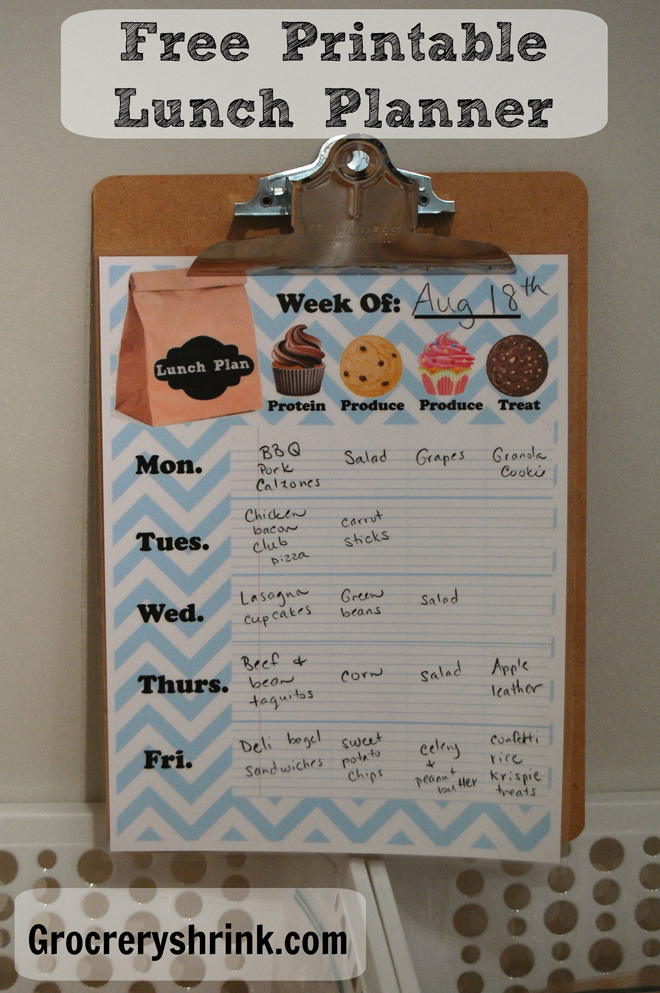 Free Printable
Lunch Planner
Week Of: Aug 18th
Lunch Plan
Protein Produce Produce Treat
Mon.
BBQ
Pork
Calzones
Salad
Grapes
Granola
Cookie
Tues.
Chicken
bacon
club
pizza
carrot
sticks
Wed.
Lasagna
cupcakes
Green
beans
salad
Thurs.
Beef &
bean
taquitos
corn
salad
Apple
leather
Fri.
Deli bagel
sandwiches
sweet
potato
chips
celery
+
peanut
butter
confetti
rice
krispie
treats
Grocreryshrink.com